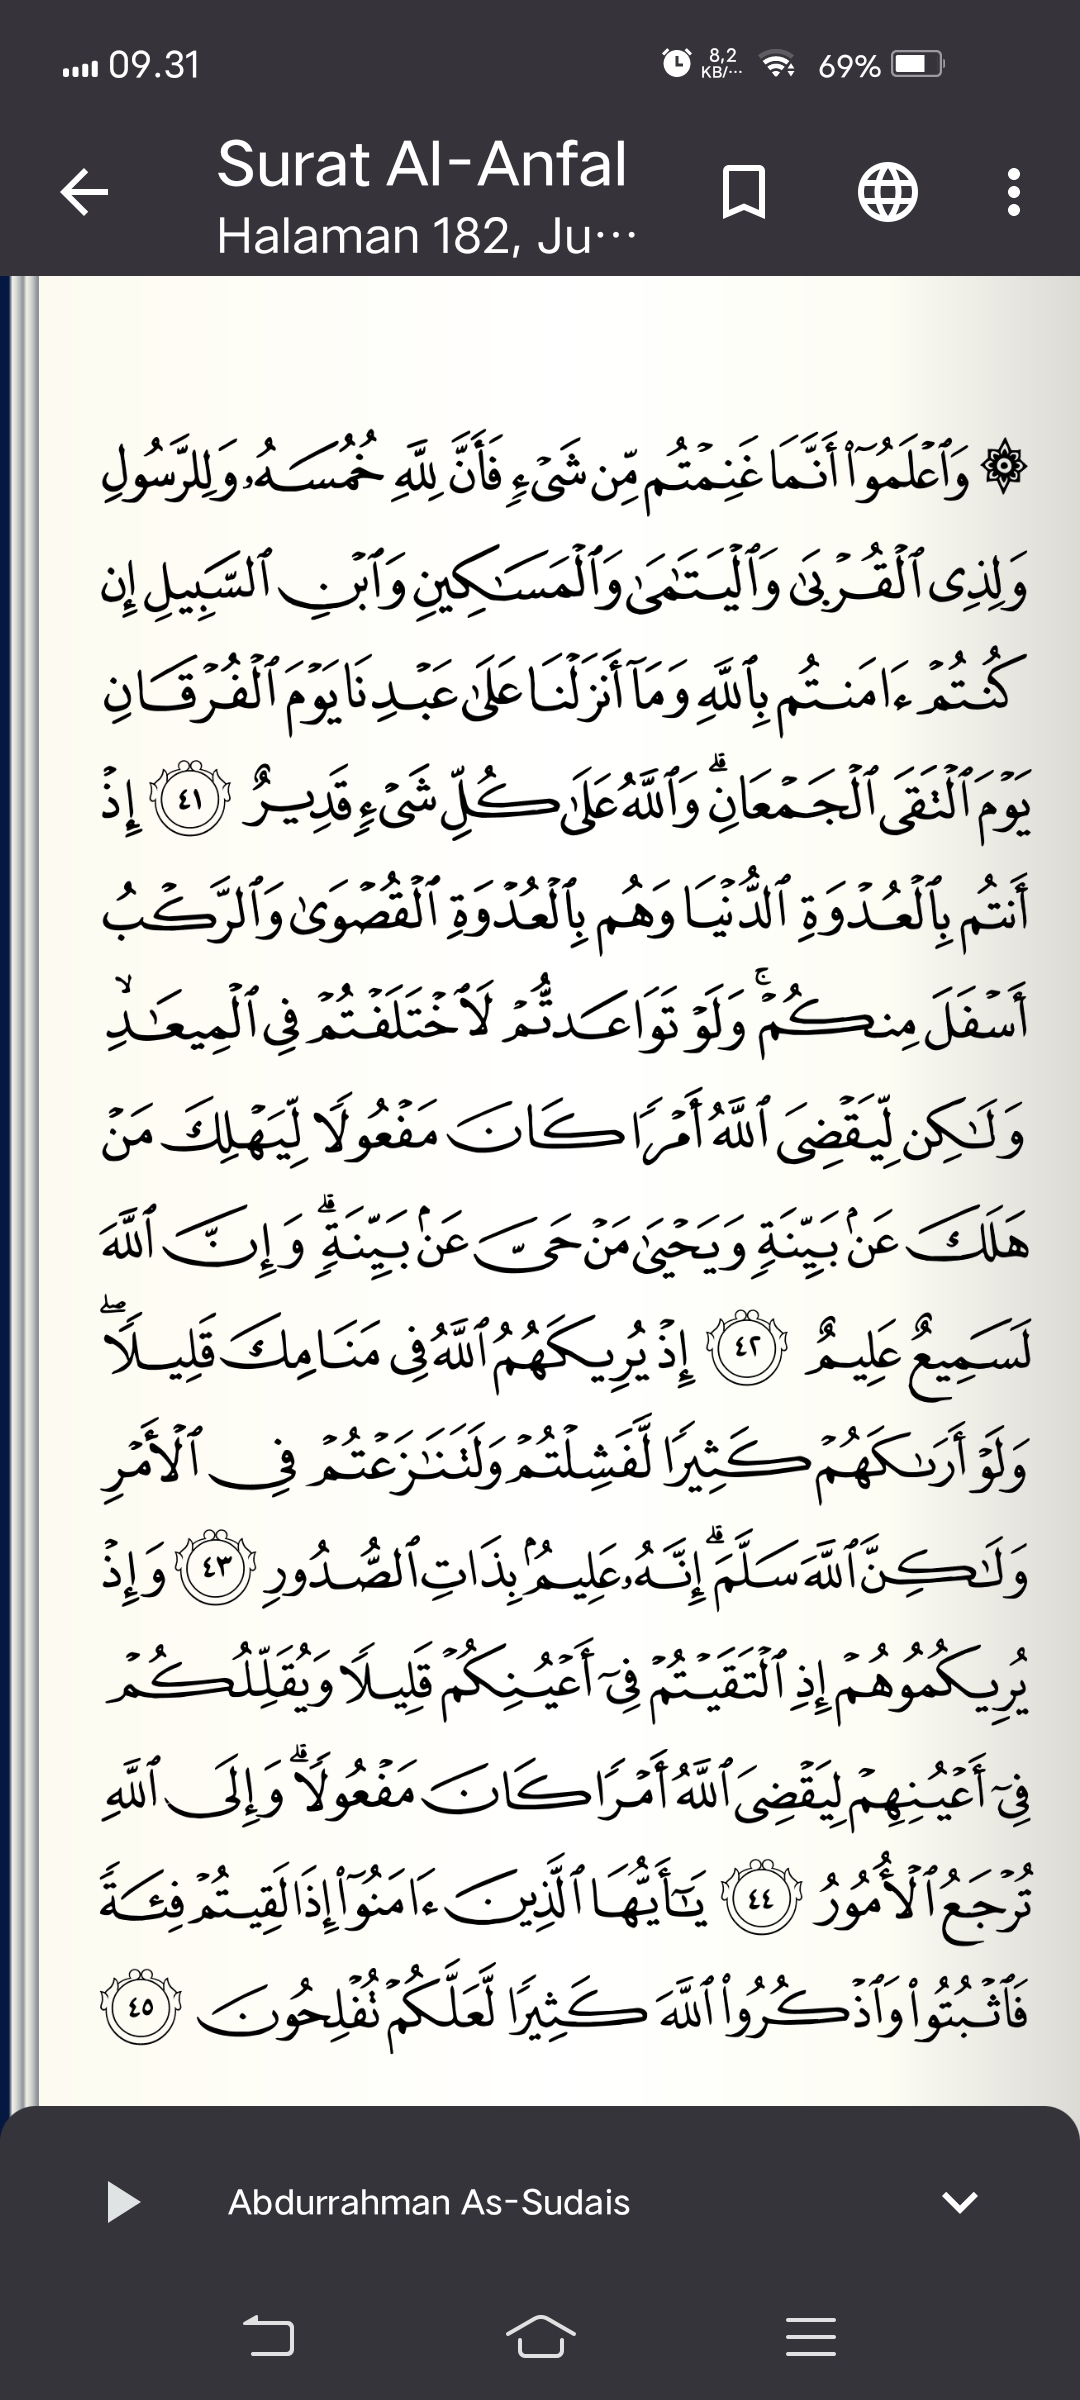 09.31
8,2
KB/...
69%
Surat Al-Anfal
Halaman 182, Ju...
۞ وَٱعۡلَمُوٓاْ أَنَّمَا غَنِمۡتُم مِّن شَيۡءٖ فَأَنَّ لِلَّهِ خُمُسَهُۥ وَلِلرَّسُولِ
وَلِذِي ٱلۡقُرۡبَىٰ وَٱلۡيَتَٰمَىٰ وَٱلۡمَسَٰكِينِ وَٱبۡنِ ٱلسَّبِيلِ إِن
كُنتُمۡ ءَامَنتُم بِٱللَّهِ وَمَآ أَنزَلۡنَا عَلَىٰ عَبۡدِنَا يَوۡمَ ٱلۡفُرۡقَانِ
يَوۡمَ ٱلۡتَقَى ٱلۡجَمۡعَانِۗ وَٱللَّهُ عَلَىٰ كُلِّ شَيۡءٖ قَدِيرٌ ٤١ إِذۡ
أَنتُم بِٱلۡعُدۡوَةِ ٱلدُّنۡيَا وَهُم بِٱلۡعُدۡوَةِ ٱلۡقُصۡوَىٰ وَٱلرَّكۡبُ
أَسۡفَلَ مِنكُمۡۚ وَلَوۡ تَوَاعَدتُّمۡ لَٱخۡتَلَفۡتُمۡ فِي ٱلۡمِيعَٰدِ ۙ
وَلَٰكِن لِّيَقۡضِيَ ٱللَّهُ أَمۡرٗا كَانَ مَفۡعُولٗا لِّيَهۡلِكَ مَنۡ
هَلَكَ عَنۢ بَيِّنَةٖ وَيَحۡيَىٰ مَنۡ حَيَّ عَنۢ بَيِّنَةٖۗ وَإِنَّ ٱللَّهَ
لَسَمِيعٌ عَلِيمٌ ٤٢ إِذۡ يُرِيكَهُمُ ٱللَّهُ فِي مَنَامِكَ قَلِيلٗاۖ
وَلَوۡ أَرَىٰكَهُمۡ كَثِيرٗا لَّفَشِلۡتُمۡ وَلَتَنَٰزَعۡتُمۡ فِي ٱلۡأَمۡرِ
وَلَٰكِنَّ ٱللَّهَ سَلَّمَۗ إِنَّهُۥ عَلِيمُۢ بِذَاتِ ٱلصُّدُورِ ٤٣ وَإِذۡ
يُرِيكُمُوهُمۡ إِذِ ٱلۡتَقَيۡتُمۡ فِيٓ أَعۡيُنِكُمۡ قَلِيلٗا وَيُقَلِّلُكُمۡ
فِيٓ أَعۡيُنِهِمۡ لِيَقۡضِيَ ٱللَّهُ أَمۡرٗا كَانَ مَفۡعُولٗاۗ وَإِلَى ٱللَّهِ
تُرۡجَعُ ٱلۡأُمُورُ ٤٤ يَٰٓأَيُّهَا ٱلَّذِينَ ءَامَنُوٓاْ إِذَا لَقِيتُمۡ فِئَةٗ
فَٱثۡبُتُواْ وَٱذۡكُرُواْ ٱللَّهَ كَثِيرٗا لَّعَلَّكُمۡ تُفۡلِحُونَ ٤٥
Abdurrahman As-Sudais